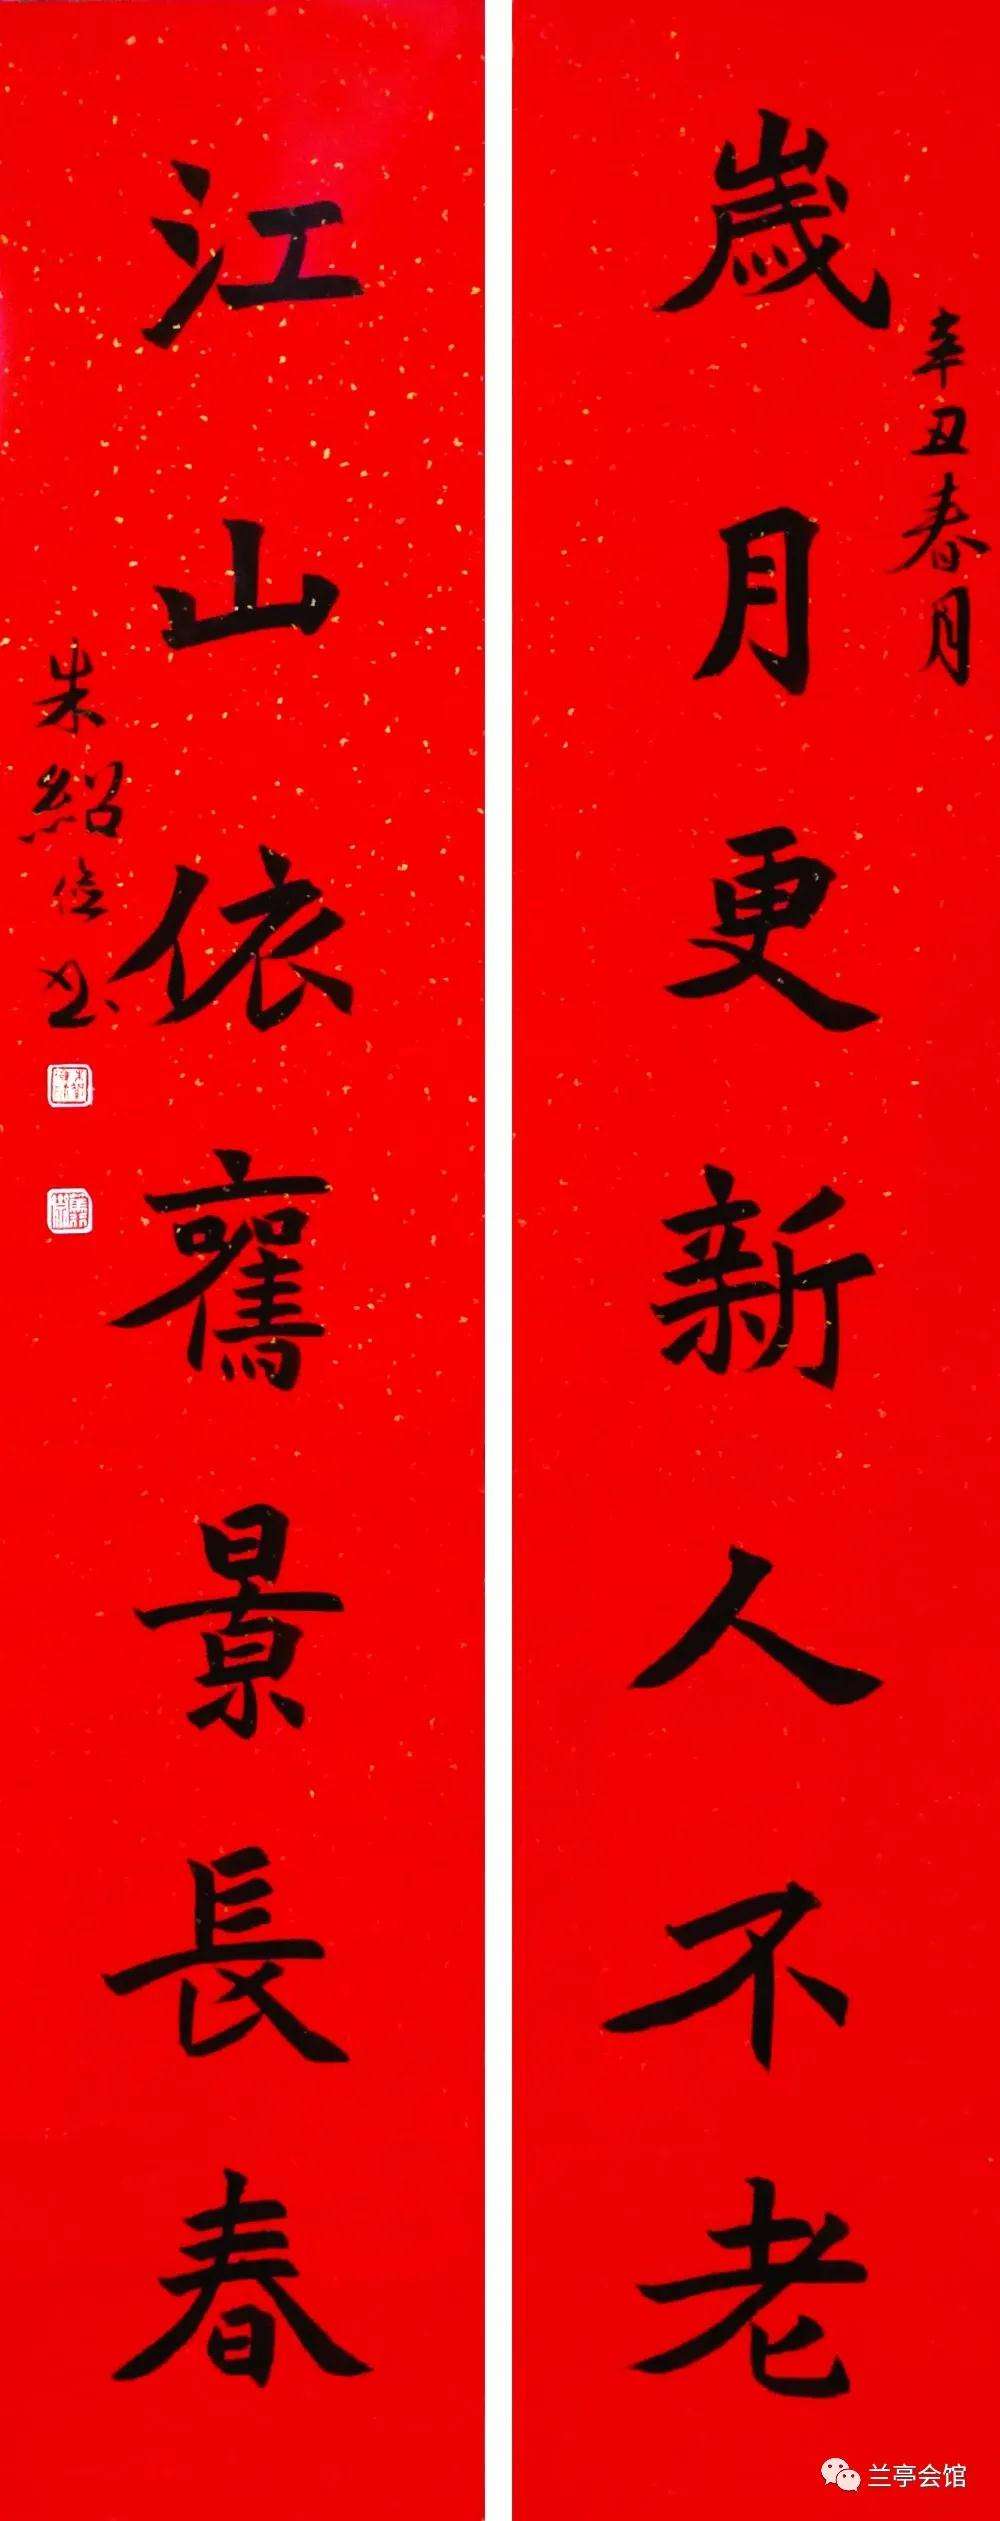 歲月更新人不老
辛丑春月
江山依舊景長春
朱紹
书
兰亭会馆